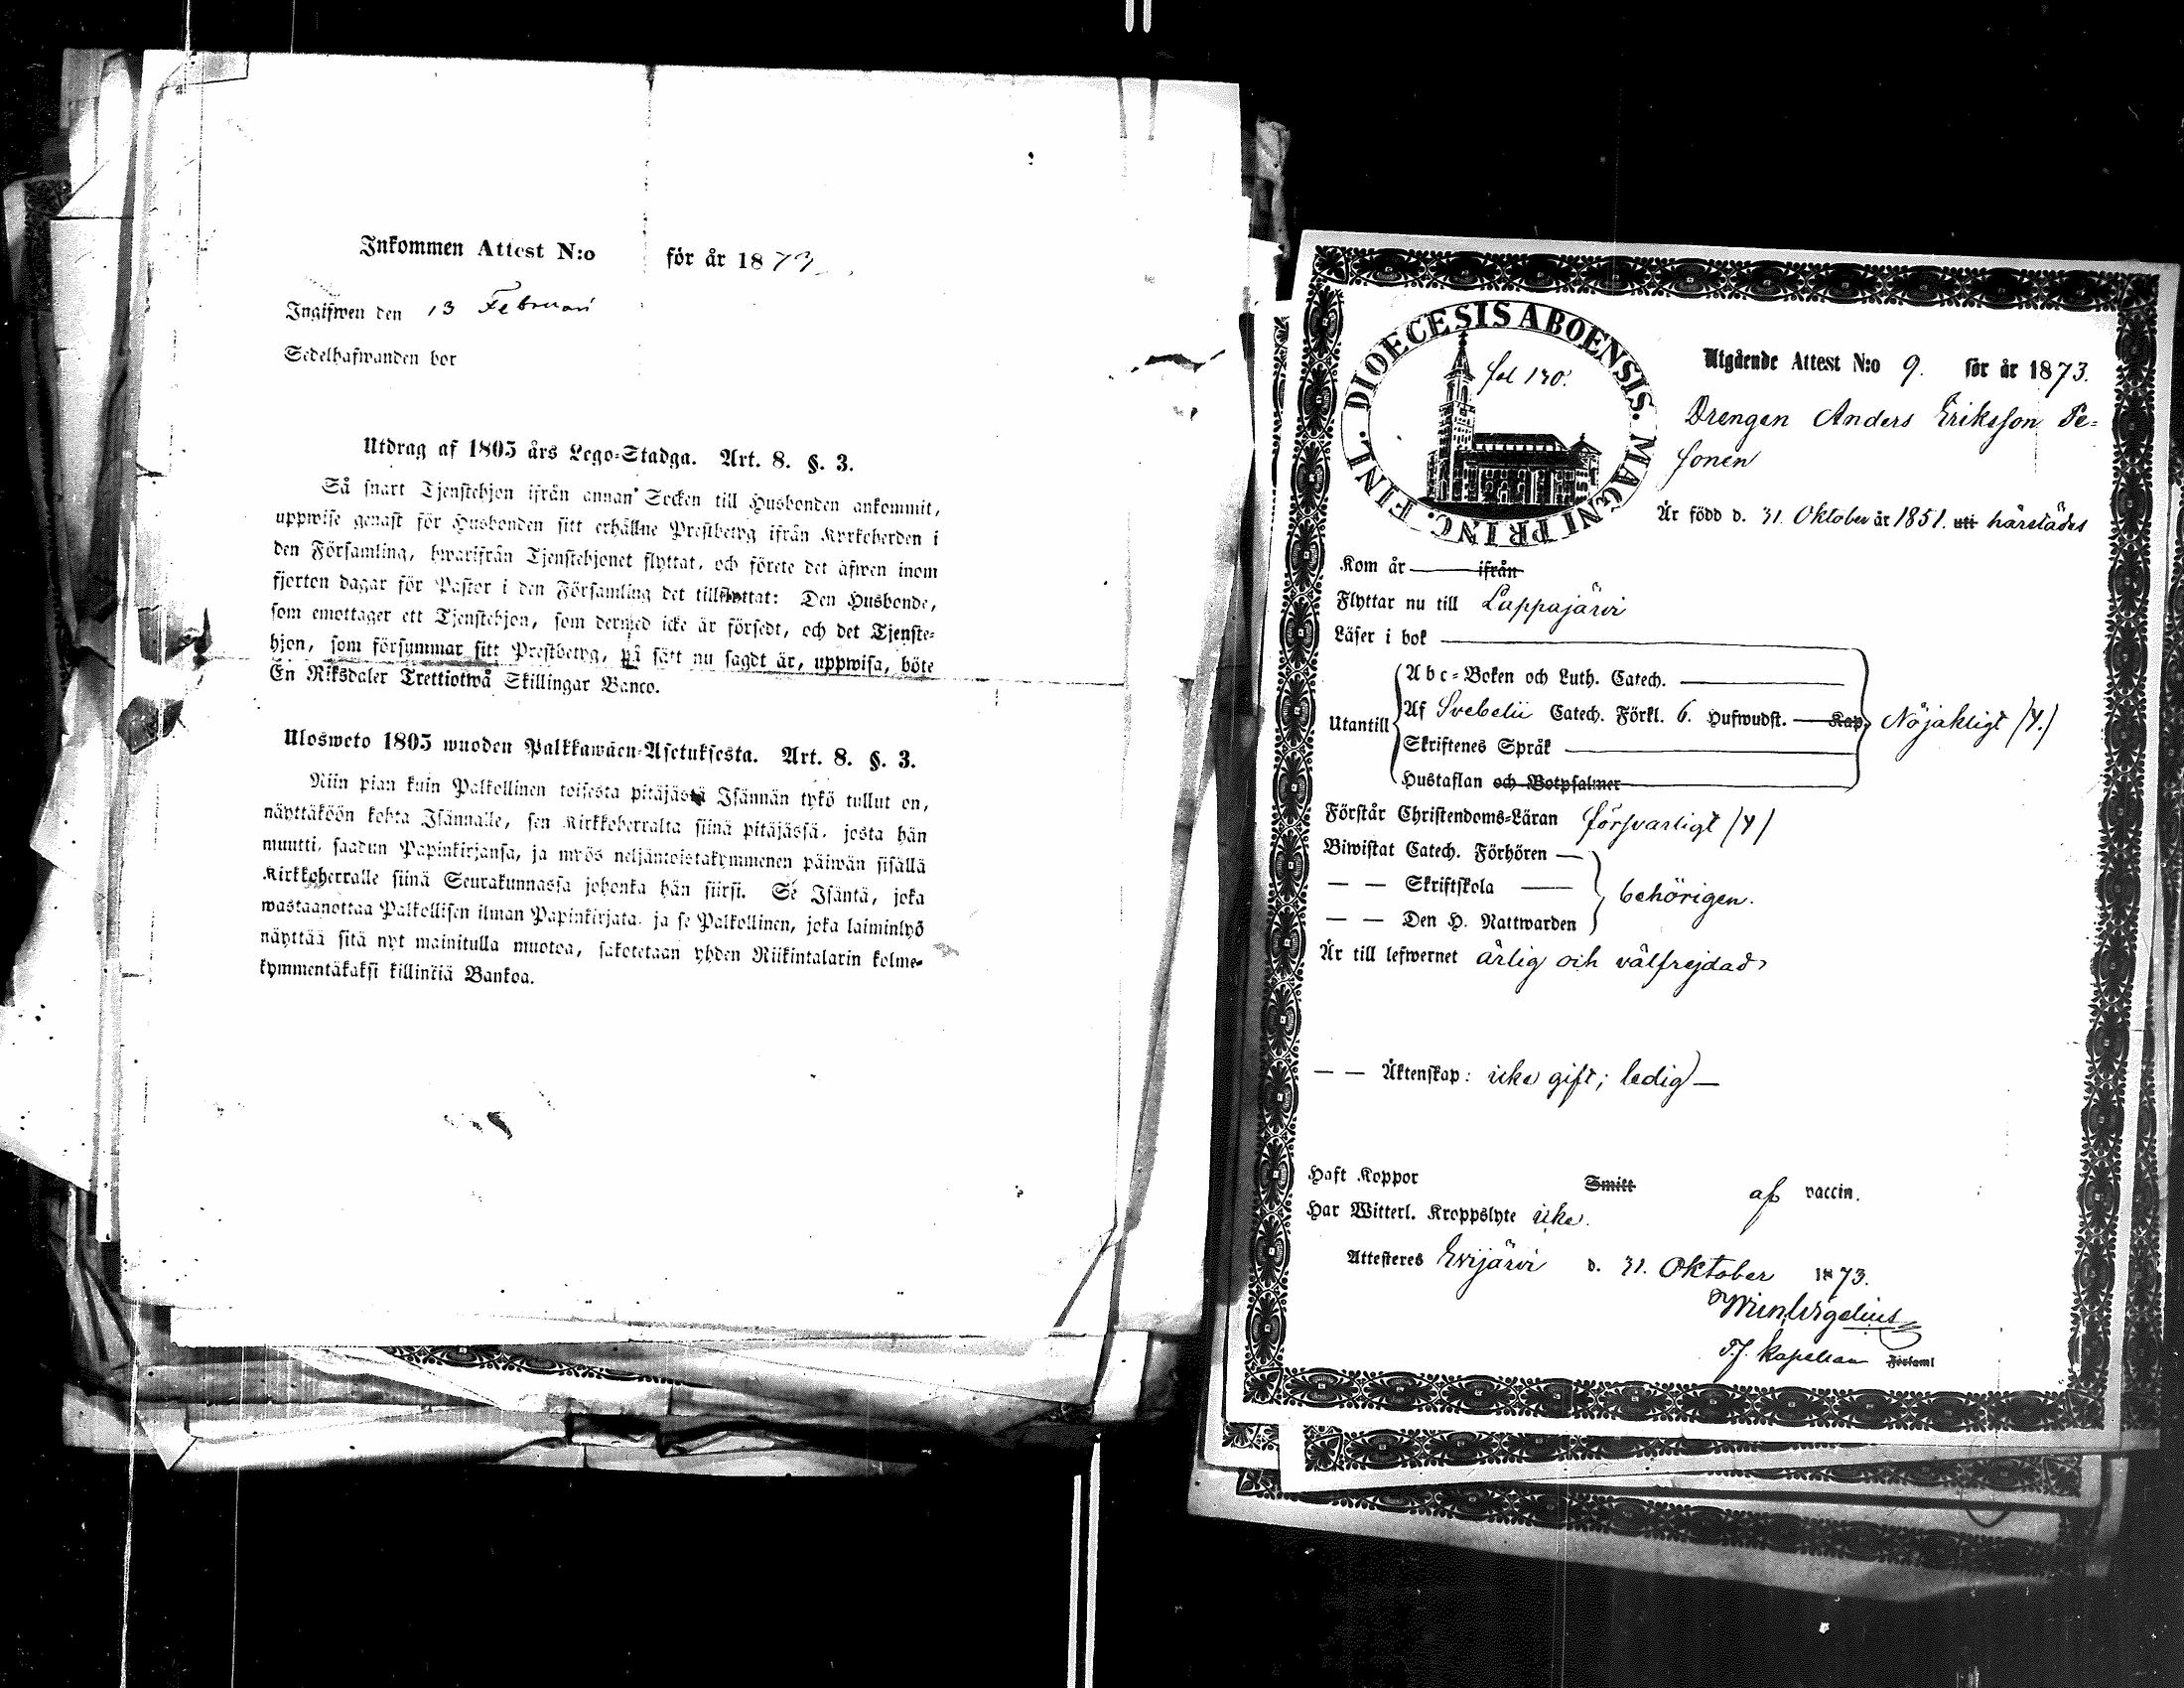 Inkommen Attest N:o för år 1873
Ingifwen den 13 Februari
Sedelhafwanden bor
Utdrag af 1805 års Lego-Stadga. Art. 8. §. 3.
Så snart Tjenstehjon ifrån annan Socken till Husbonden ankommit,
uppwise genast för Husbonden sitt erhållne Prestbetyg ifrån Kyrkoherden i
den Församling, hwarifrån Tjenstehjonet flyttat, och förete det äfwen inom
fjorton dagar för Pastor i den Församling det tillflyttat: Den Husbonde,
som emottager ett Tjenstehjon, som dermed icke är försedt, och det Tjenste-
hjon, som försummar sitt Prestbetyg, på sätt nu sagdt är, uppwisa, böte
En Riksdaler Trettiotwå Skillingar Banco.
Ulosweto 1805 wuoden Palkkawäen-Asetuksesta. Art. 8. §. 3.
Niin pian kuin Palkollinen toisesta pitäjästä Isännän tykö tullut on,
näyttäköön kohta Isännälle, sen Kirkkoherralta siinä pitäjässä, josta hän
muutti, saadun Papinkirjansa, ja myös neljäntoistakymmenen päiwän sisällä
Kirkkoherralle siinä Seurakunnassa johonka hän siirsi. Se Isäntä, joka
wastaanottaa Palkollisen ilman Papinkirjata, ja se Palkollinen, joka laiminlyö
näyttää sitä nyt mainitulla muotoa, sakotetaan yhden Riikintalarin kolme-
kymmentäkaksi killinkiä Bankoa.
DIOECESIS ABOENSIS. MAGNI PRINC. FINL.
fol 130.
Utgående Attest N:o 9. för år 1873.
Drengen Anders Eriksson Pe-
sonen
Är född d. 31. Oktober år 1851. uti härstädes
Kom år ifrån
Flyttar nu till Lappajärvi
Läser i bok
Utantill
Abc-Boken och Luth. Catech.
Af Svebelii Catech. Förkl. 6. Hufwudst. Kap. Nöjaktigt
Skriftenes Språk
Hustaflan och Botpsalmer
Förstår Christendoms-Läran försvarligt
Biwistat Catech. Förhören
— — Skriftskola — behörigen.
— — Den H. Nattwarden
Är till lefwernet ärlig och välfrejdad,
— — Äktenskap: icke gift; ledig —
Haft Koppor Smitt af vaccin.
Har Witterl. Kroppslyte icke.
Attesteres Evijärvi d. 31. Oktober 1873.
T.f. Kapellan Församl